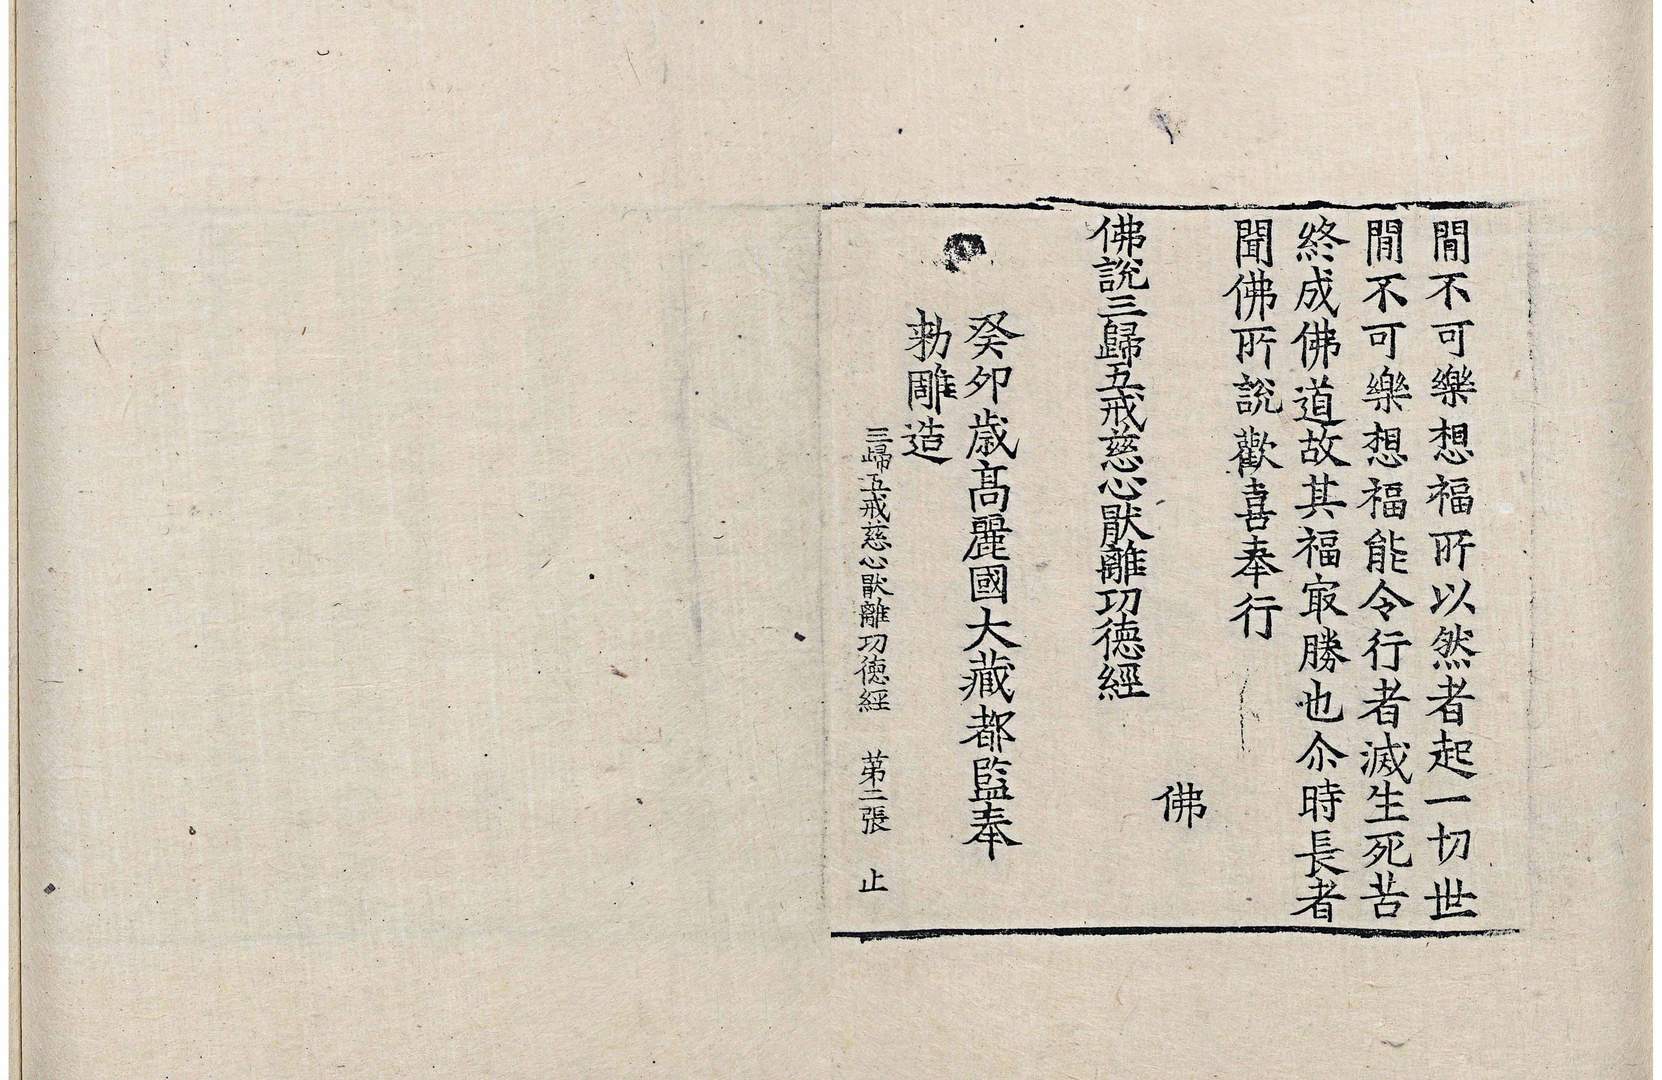 閒不可樂想福所以然者起一切世
閒不可樂想福能令行者滅生死苦
終成佛道故其福㝡勝也尒時長者
聞佛所說歡喜奉行
佛
佛說三歸五戒慈心猒離功德經
癸卯歲高麗國大藏都監奉
勅雕造
三歸五戒慈心猒離功德經 第二張 止